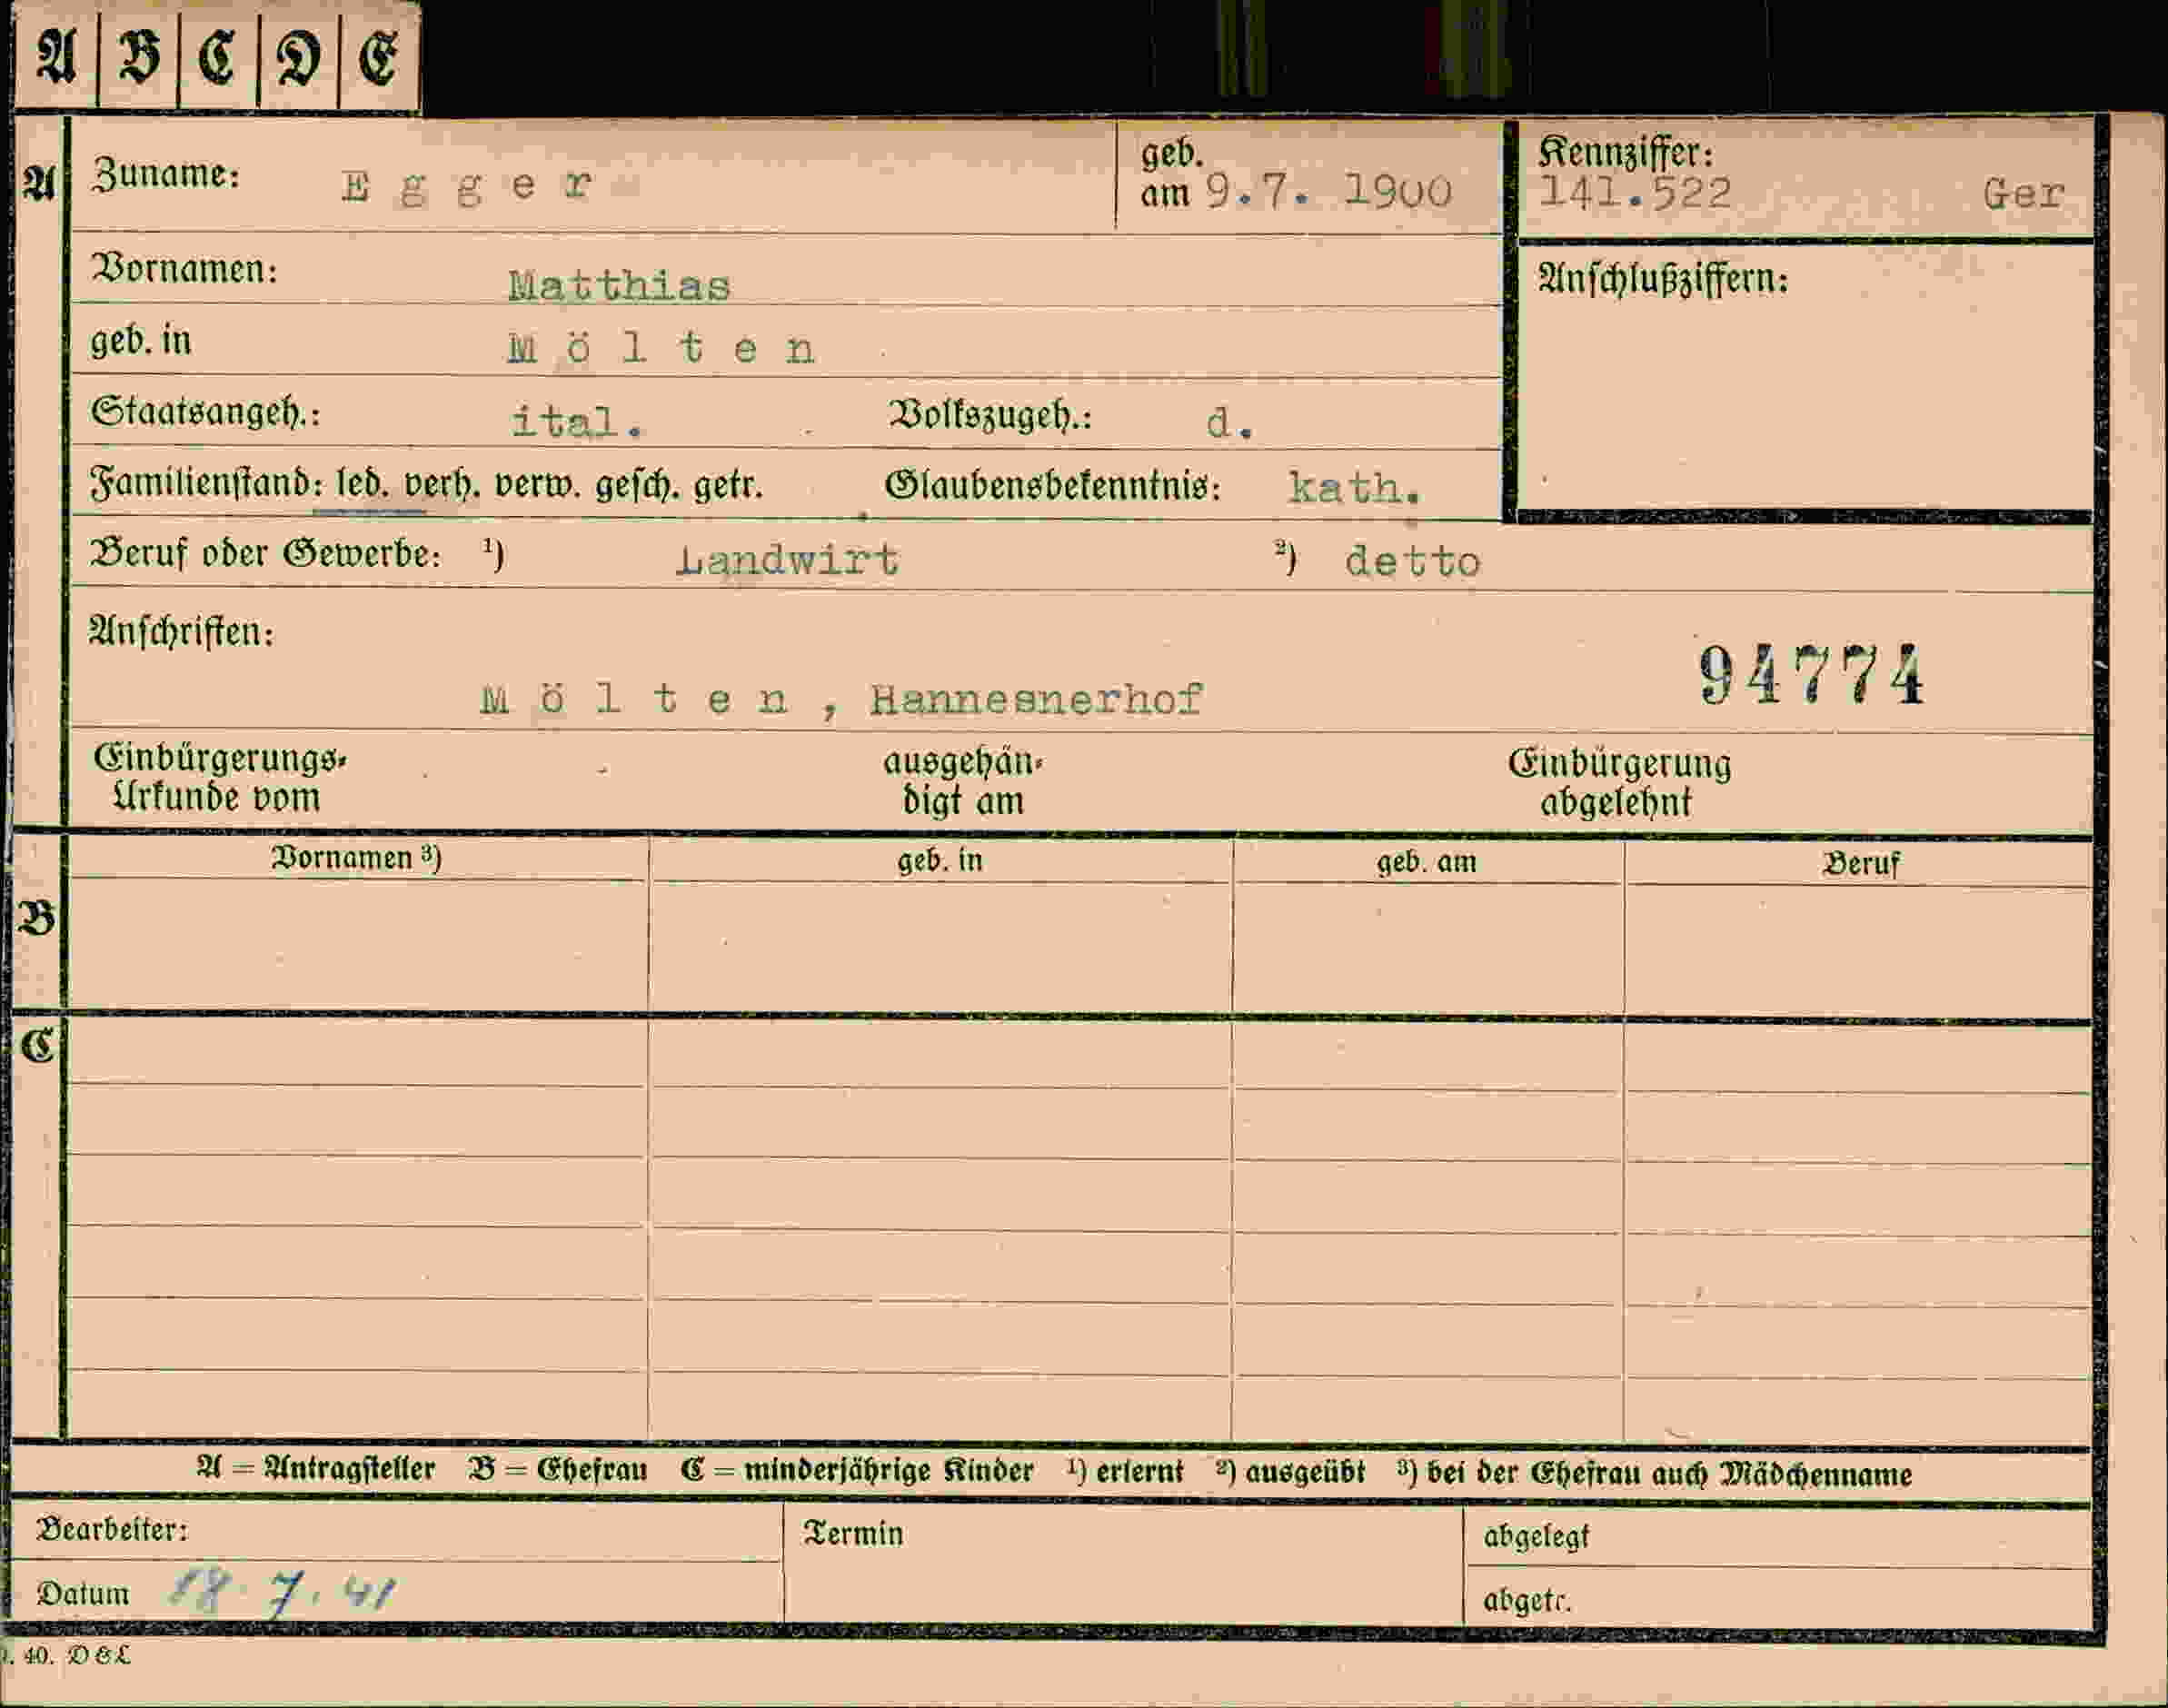 A B C D E
A Zuname: Egger geb. am 9.7. 1900 Kennziffer: 141.522 Ger
Vornamen: Matthias Anschlußziffern:
geb. in Mölten
Staatsangeh.: ital. Volkszugeh.: d.
Familienstand: led. verh. verw. gesch. getr. Glaubensbekenntnis: kath.
Beruf oder Gewerbe: ¹) Landwirt ²) detto
Anschriften:
94774
Mölten, Hannesnerhof
Einbürgerungs-
Urkunde vom
ausgehän-
digt am
Einbürgerung
abgelehnt
Vornamen ³) geb. in geb. am Beruf
B
C
A = Antragsteller B = Ehefrau C = minderjährige Kinder ¹) erlernt ²) ausgeübt ³) bei der Ehefrau auch Mädchenname
Bearbeiter: Termin abgelegt
Datum 18. 7. 41 abgetr.
40. D&L